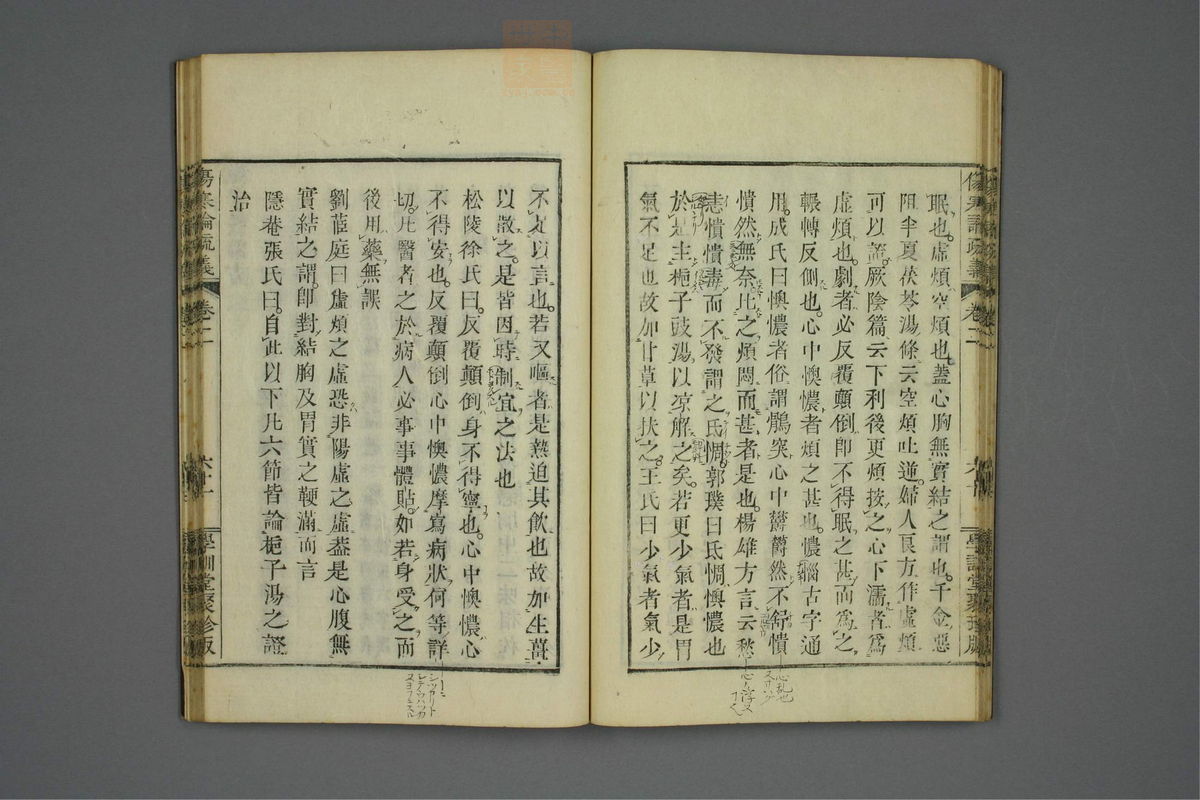 眠也虛煩空煩也蓋心胸無實結之謂也千金惡
阻半夏茯苓湯條云空煩吐逆婦人良方作虛煩
可以證厥陰篇云下利後更煩按之心下濡者爲
虛煩也劇者必反覆顛倒即不得眠之甚而爲之
輾轉反側也心中懊憹者煩之甚也憹惱古字通
用成氏曰懊憹者俗謂鶻突心中鬱鬱然不舒憒
憒然無奈比之煩悶而甚者是也楊雄方言云愁
恚憒憒毒而不發謂之氐惆郭璞曰氐惆懊憹也
於是主梔子豉湯以凉解之矣若更少氣者是胃
氣不足也故加甘草以扶之王氏曰少氣者氣少
不足以言也若又嘔者是熱迫其飲也故加生薑
以散之是皆因時制宜之法也
松陵徐氏曰反覆顛倒身不得寧也心中懊憹心
不得安也反覆顛倒心中懊憹摩寫病狀何等詳
切凡醫者之於病人必事事體貼如若身受之而
後用藥無誤
劉茝庭曰虛煩之虛恐非陽虛之虛蓋是心腹無
實結之謂即對結胸及胃實之鞕滿而言
隱菴張氏曰自此以下凡六節皆論梔子湯之證
治
傷寒論疏義
卷二
六十一
學訓堂聚珍版